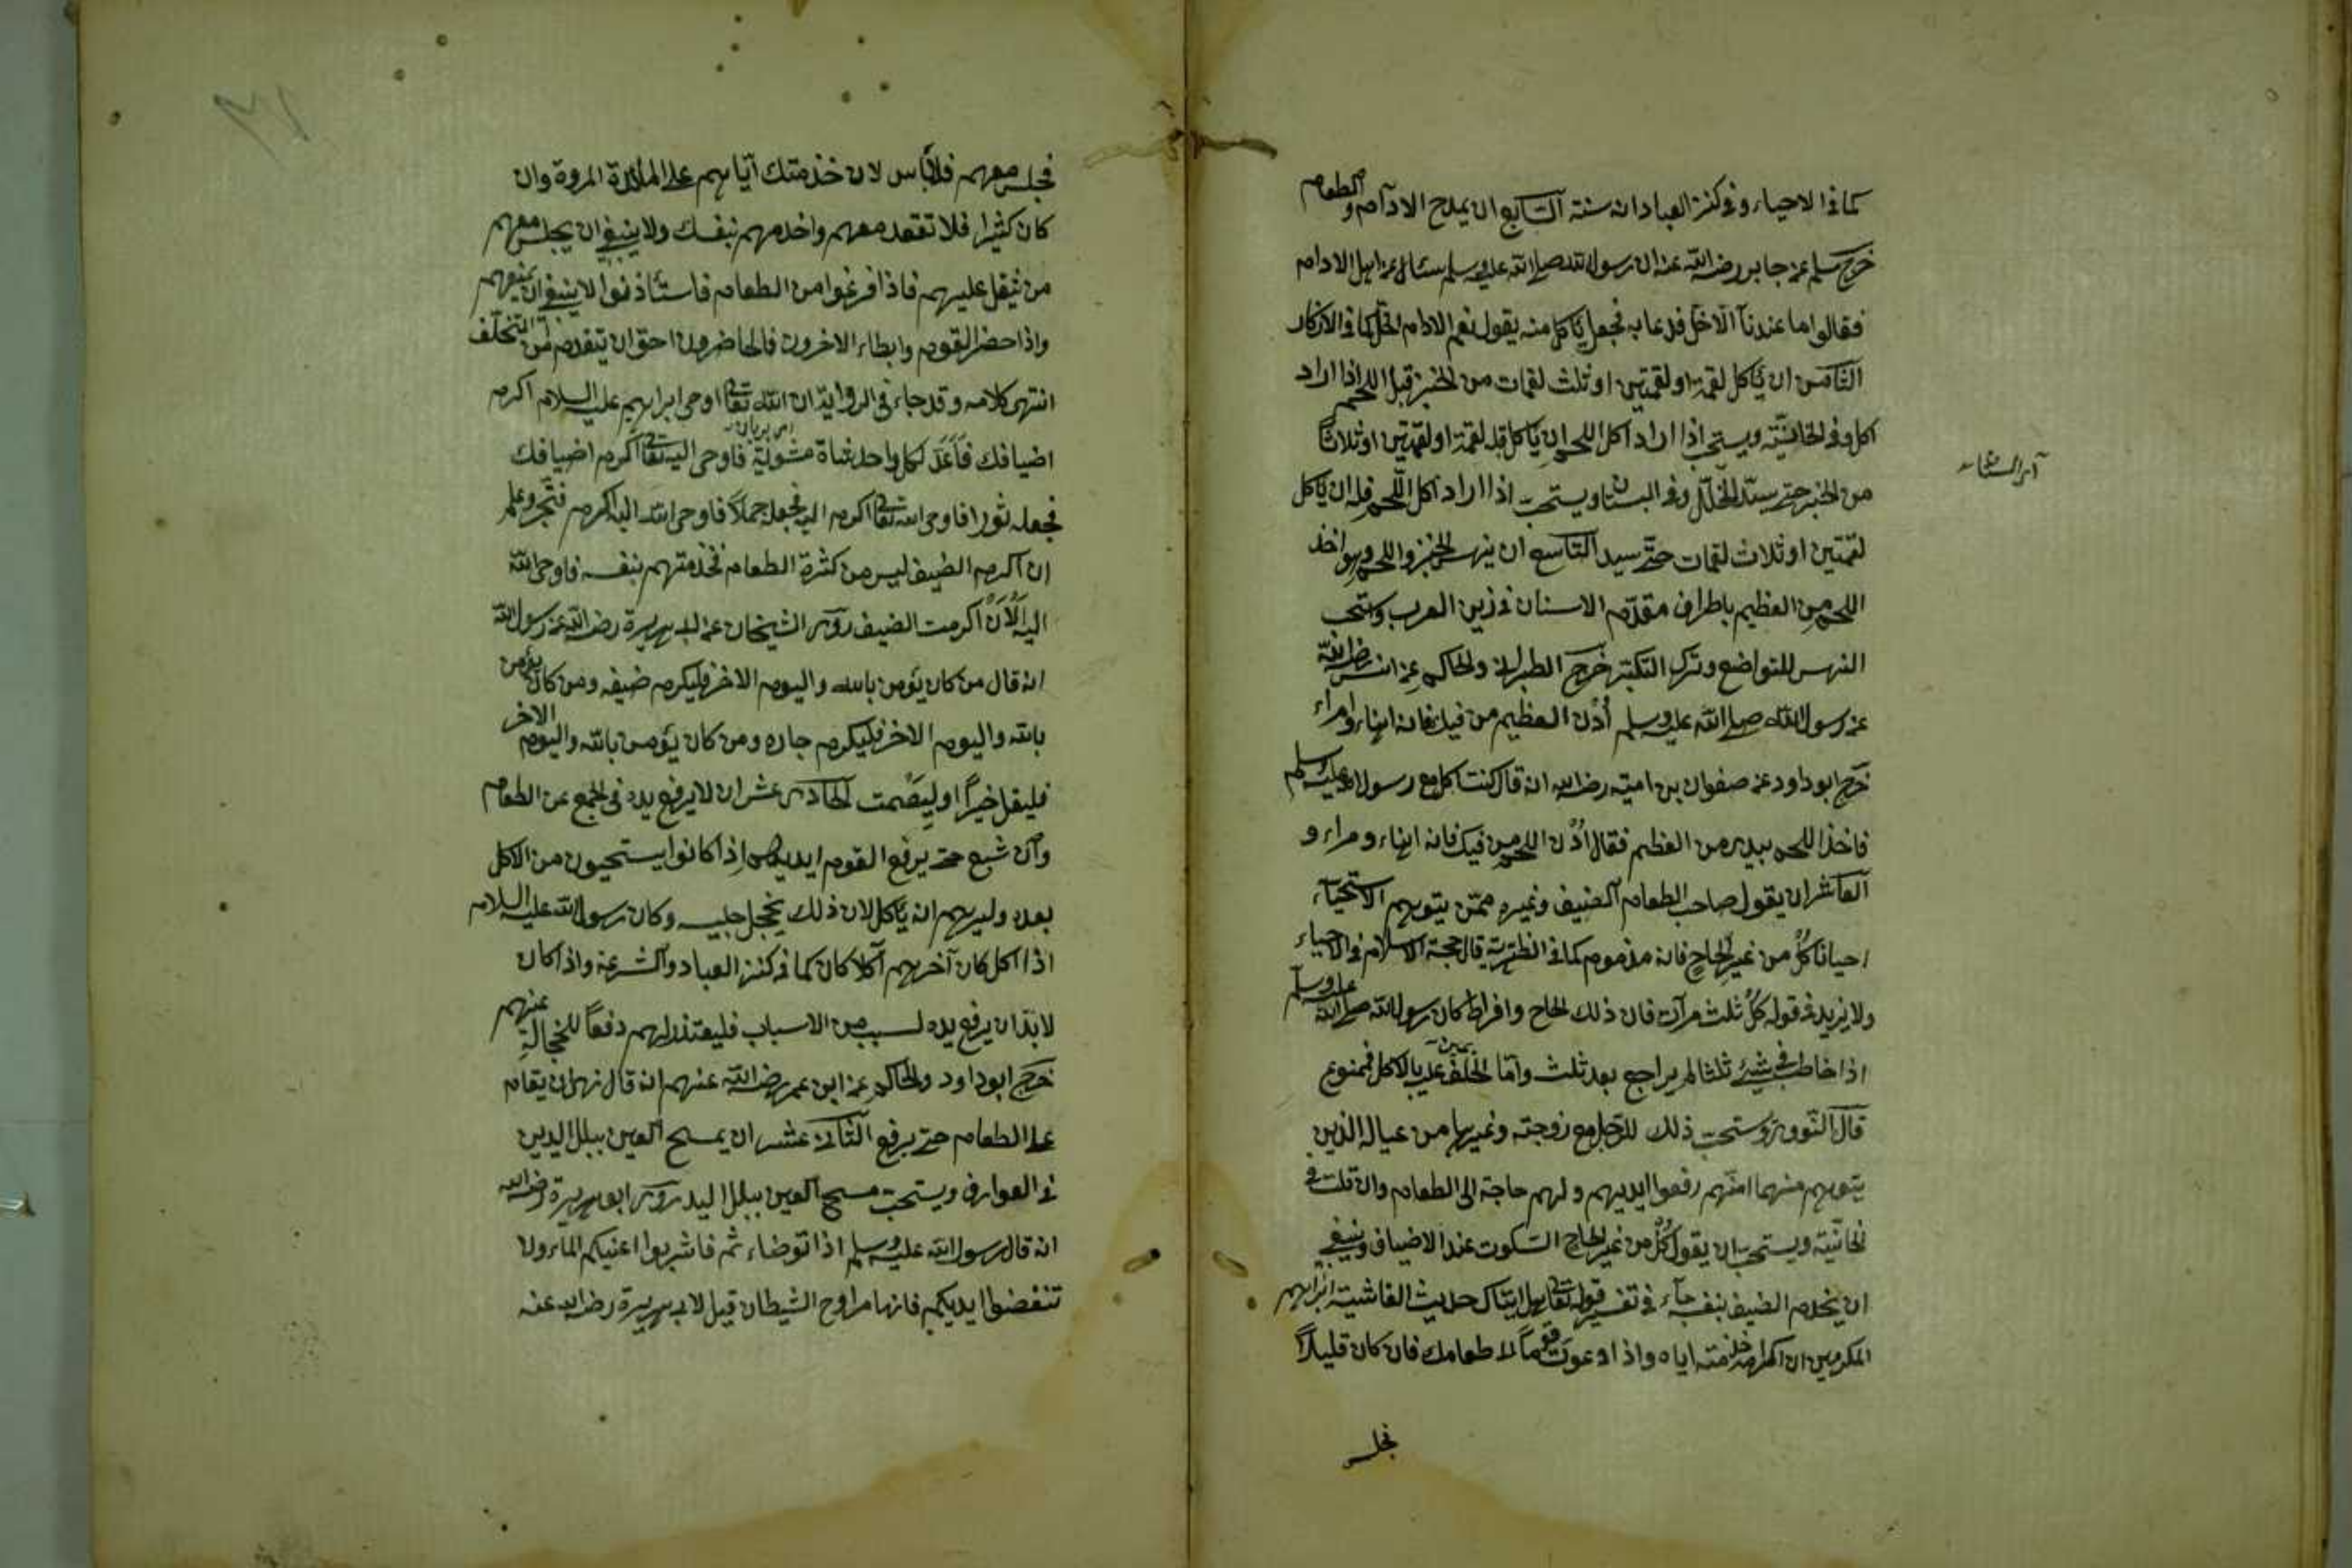 كما فى الاحياء وفى كنز العباد انه سنة السابع ان يمدح الادام والطعام
خرج مسلم عن جابر رضى الله عنه ان رسول الله صلى الله عليه وسلم سئال عن اهل الادام
فقالوا ما عندنا الا خل فدعا به فجعل ياكل منه يقول نعم الادام الخل كما فى الاذكار
الثامن ان ياكل لقمة او لقمتين او ثلث لقمات من الخبز قبل اللحم اذا اراد
اكل وفى الخانيّة ويستحب اذا اراد اكل اللحم ان ياكل قبله لقمة او لقمتين او ثلاثًا
من الخبز حتى سدّ الخلل وفى البستان ويستحب اذا اراد اكل اللحم قبله ان ياكل
لقمتين او ثلاث لقمات حتى سيد التاسع ان ينهس الخبز واللحم وهو اخذ
اللحم من العظيم باطراف مقدّم الاسنان فى زين العرب وستحب
النهس للتواضع وترك التكبّر خرج الطبرانى والحاكم عن انس رضى الله
عن رسول الله صلى الله عليه وسلم أدْنِ العظيم من فيك فانه اهناء وامراء
خرج ابو داود عن صفوان بن امية رضى الله انه قال كنت اكل مع رسول الله عليه وسلم
فاخذ اللحم بيدى من العظم فقال ادْنِ اللحم من فيك فانه اهناء ومراء و
العاشر ان يقول صاحب الطعام للضيف وغيره ممّن يتوهم الاستحياء
احيانا كُلْ من غير الحاح فانه مذموم كما فى الظهيرية قال حجة الاسلام فى الاحياء
ولا يزيد فى قوله كُلْ ثلث مرات فان ذلك الحاح وافراط كان رسول الله صلى الله عليه وسلم
اذا خاطب فى شئ ثلثا لم يراجع بعد ثلث وامّا الحلف عليه بالاكل فممنوع
يمين
قال النووى وستحب ذلك للرجل مع زوجته وغيرها من عياله الذين
يتوهم منهما انّهم رفعوا ايديهم ولهم حاجة الى الطعام وان قلت فى
الخانيّة ويستحب ان يقول كُلْ من غير الحاح السكوت عند الاضياف وينبغى
ان يخدم الضيف بنفسه جاء فى تفسير قوله تعالى هل اتيك حديث الغاشية ابراهيم
المكرمين ان اكرامه خدمته اياه واذا دعوت قومًا لا طعامك فان كان قليلاً
فجلس
فجلس معهم فلا بأس لان خذمتك ايّاهم على المائدة المروة وان
كان كثيرا فلا تقعد معهم واخدمهم بنفسك ولا ينبغى ان يجلس معهم
من ثيقل عليهم فاذا فرغوا من الطعام فاستأذنوا لا ينبغى ان يمنعهم
واذا حضر القوم وابطاء الاخرون فالحاضرون احق ان تيقدم من التخلّف
انتهى كلامه وقد جاء فى الرواية ان الله تعالى اوحى ابراهيم عليه السلام اكرم
اضيافك فَأَعَدَّ لكل واحد شاة مشوية فاوحى اليه تعالى اكرم اضيافك
فجعله ثورا فاوحى الله تعالى اكرم اليه فجعله جملاً فاوحى الله اليه اكرم فتحّير وعلم
ان اكرم الضيف ليس من كثرة الطعام فخدمتهم بنفسه فاوحى الله
اليه اَلْاٰنَ اكرمت الضيف روى الشيخان عن ابى هريرة رضى الله عن رسول الله
انه قال من كان يؤمن بالله واليوم الاخر فليكرم ضيفه ومن كان يؤمن
بالله واليوم الاخر فليكرم جاره ومن كان يؤمن بالله واليوم الاخر
فليقل خيرًا او ليصْمت الحادى عشر ان لا يرفع يده فى الجمع عن الطعام
وان شبع حتى يرفع القوم ايديهم اذا كانوا يستحيون من الاكل
بعده وليرهم انه ياكل لان ذلك يخجل جليسه وكان رسول الله عليه السلام
اذا اكل كان آخرهم آكلا كان كما فى كنز العباد والشرعة واذا كان
لابدّ ان يرفع يده لسبب من الاسباب فليعتذر لهم دفعًا للخجالة عنهم
خرج ابو داود والحاكم عن ابن عمر رضى الله عنهم انه قال نهى ان يقام
على الطعام حتى يرفع الثانى عشر ان يمسح العين ببلل اليدين
فى العوارف ويستحب مسح العين ببلل اليد روى ابو هريرة رضى الله
انه قال رسول الله عليه وسلم اذا توضاء ثم فاشربوا اعنيكم الماء ولا
تنفضوا ايديكم فانها مراوح الشيطان قيل لابى هريرة رضى الله عنه